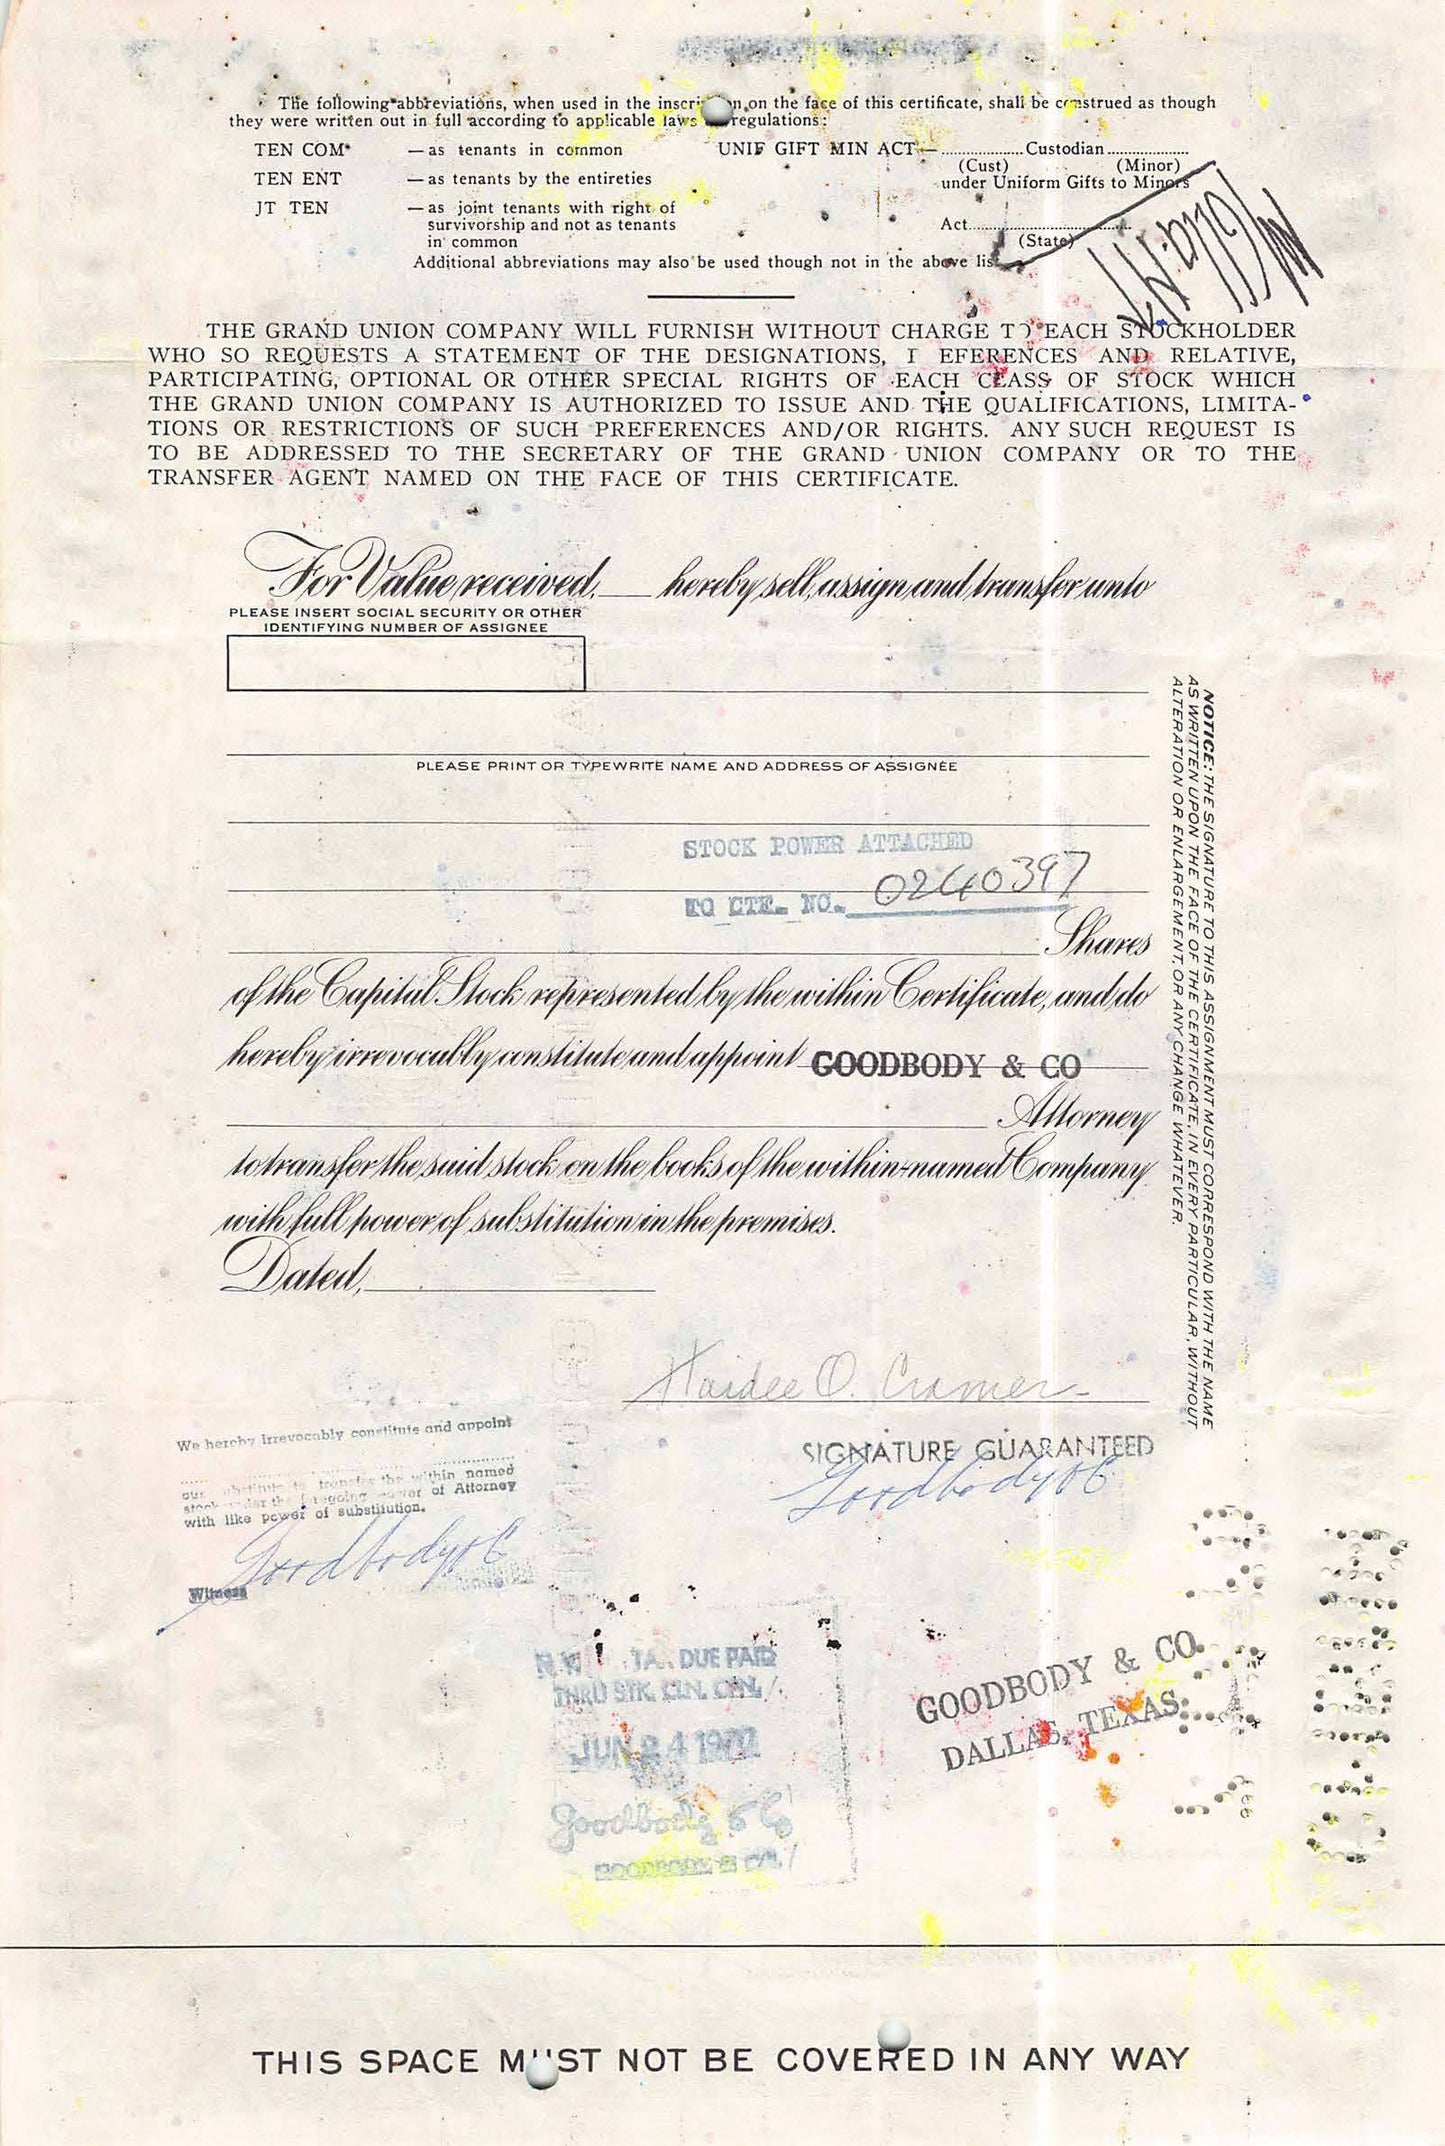 The following abbreviations, when used in the inscription on the face of this certificate, shall be construed as though
they were written out in full according to applicable laws regulations:
TEN COM — as tenants in common
TEN ENT — as tenants by the entireties
JT TEN — as joint tenants with right of
survivorship and not as tenants
in common
UNIF GIFT MIN ACT — ....................Custodian....................
(Cust) (Minor)
under Uniform Gifts to Minors
Act........................................
(State)
Additional abbreviations may also be used though not in the above list
THE GRAND UNION COMPANY WILL FURNISH WITHOUT CHARGE TO EACH STOCKHOLDER
WHO SO REQUESTS A STATEMENT OF THE DESIGNATIONS, PREFERENCES AND RELATIVE,
PARTICIPATING, OPTIONAL OR OTHER SPECIAL RIGHTS OF EACH CLASS OF STOCK WHICH
THE GRAND UNION COMPANY IS AUTHORIZED TO ISSUE AND THE QUALIFICATIONS, LIMITA-
TIONS OR RESTRICTIONS OF SUCH PREFERENCES AND/OR RIGHTS. ANY SUCH REQUEST IS
TO BE ADDRESSED TO THE SECRETARY OF THE GRAND UNION COMPANY OR TO THE
TRANSFER AGENT NAMED ON THE FACE OF THIS CERTIFICATE.
For Value received, ____ hereby sell, assign and transfer unto
PLEASE INSERT SOCIAL SECURITY OR OTHER
IDENTIFYING NUMBER OF ASSIGNEE
PLEASE PRINT OR TYPEWRITE NAME AND ADDRESS OF ASSIGNEE
STOCK POWER ATTACHED
TO CTF. NO. 0240397
Shares
of the Capital Stock represented by the within Certificate, and do
hereby irrevocably constitute and appoint GOODBODY & CO
Attorney
to transfer the said stock on the books of the within-named Company
with full power of substitution in the premises.
Dated,
NOTICE: THE SIGNATURE TO THIS ASSIGNMENT MUST CORRESPOND WITH THE NAME
AS WRITTEN UPON THE FACE OF THE CERTIFICATE, IN EVERY PARTICULAR, WITHOUT
ALTERATION OR ENLARGEMENT, OR ANY CHANGE WHATEVER.
Haidee O. Cramer
SIGNATURE GUARANTEED
Goodbody & Co
We hereby irrevocably constitute and appoint
our substitute to transfer the within named
stock under the foregoing power of Attorney
with like power of substitution.
Goodbody & Co
Witness
TAX DUE PAID
THRU STK. CLR. CPN.
JUN 24
Goodbody & Co
GOODBODY & CO.
GOODBODY & CO.
DALLAS, TEXAS
THIS SPACE MUST NOT BE COVERED IN ANY WAY